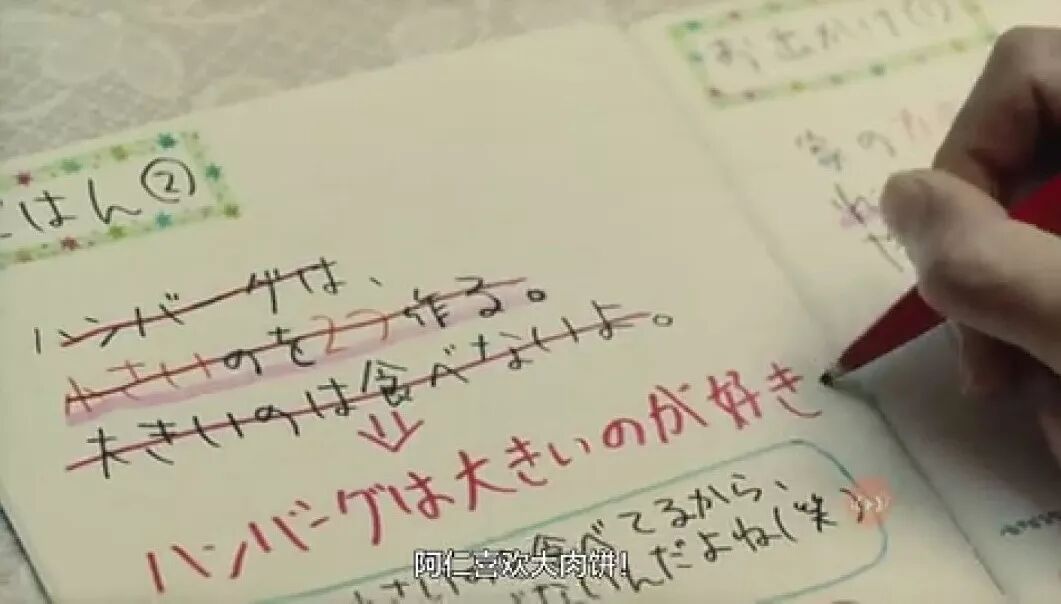 ごはん②
ハンバーグは、
小さいのを2つ作る。
大きいのは食べないよ。
⇓
ハンバーグは大きいのが好き
食べてるから、
んだよね(笑)
お出かけ①
家の
阿仁喜欢大肉饼!